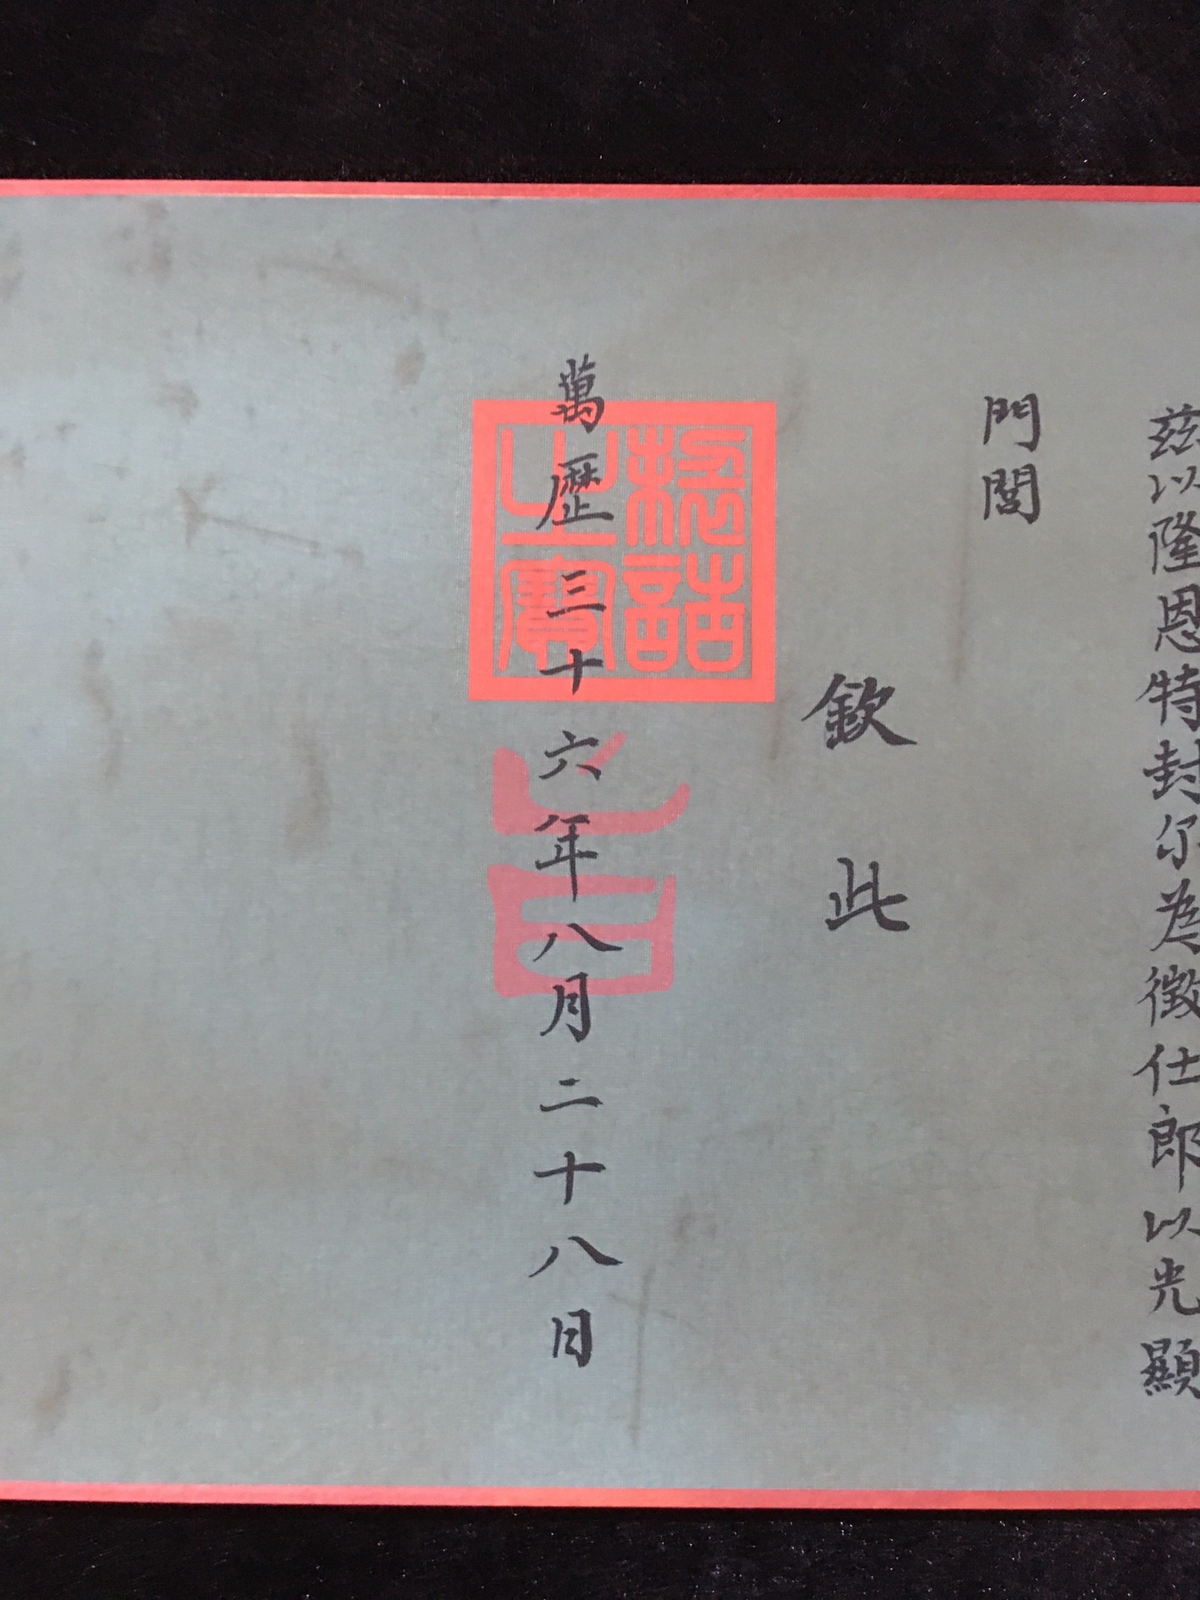 茲以隆恩特封尔為徵仕郎以光顯
門閭
欽此
萬歷三十六年八月二十八日
敕誥之寶